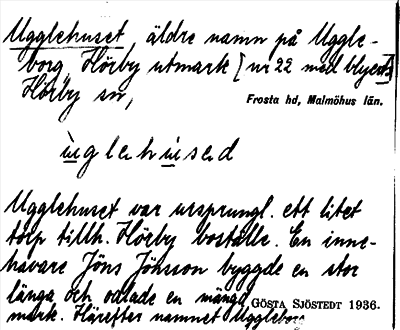 Ugglehuset, äldre namn på Uggle-
borg, Hörby utmark [nr 22 med blyerts]
Hörby sn,
Frosta hd, Malmöhus län.
u̇glehu̇sed
Ugglehuset var ursprungl. ett litet
torp tillh. Hörby boställe. En inne-
havare Jöns Jönsson byggde en stor
länga och odlade en mängd
mark. Härefter namnet Uggleborg
GÖSTA SJÖSTEDT 1936.